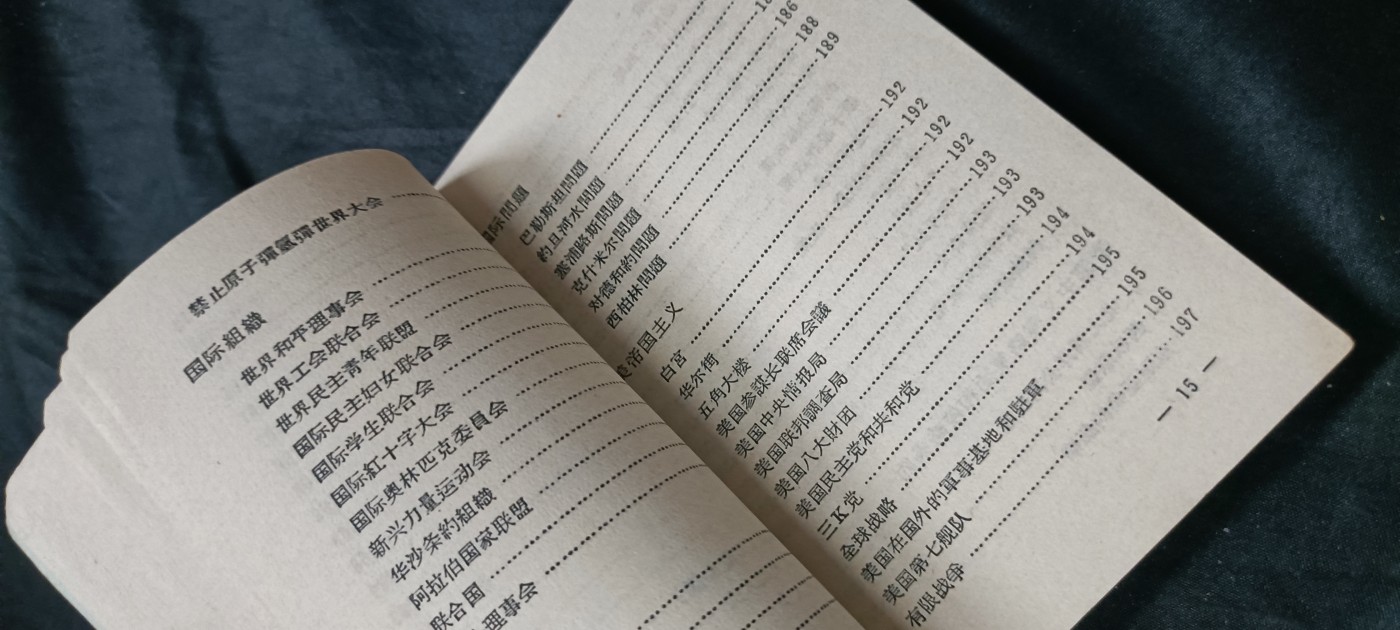 禁止原子彈氫彈世界大会
国际組織
世界和平理事会
世界工会联合会
世界民主青年联盟
国际民主妇女联合会
国际学生联合会
国际紅十字大会
国际奥林匹克委員会
新兴力量运动会
华沙条約組織
阿拉伯国家联盟
联合国
理事会
186
188
189
国际問題
巴勒斯坦問題
約旦河水問題
塞浦路斯問題
克什米尔問題
对德和約問題
西柏林問題
帝国主义
白宮 192
华尔街 192
五角大楼 192
美国参謀长联席会議 192
美国中央情报局 193
美国联邦調査局 193
美国八大財团 193
美国民主党和共和党 194
三K党 194
全球战略 195
美国在国外的軍事基地和駐軍 195
美国第七舰队 196
有限战争 197
— 15 —